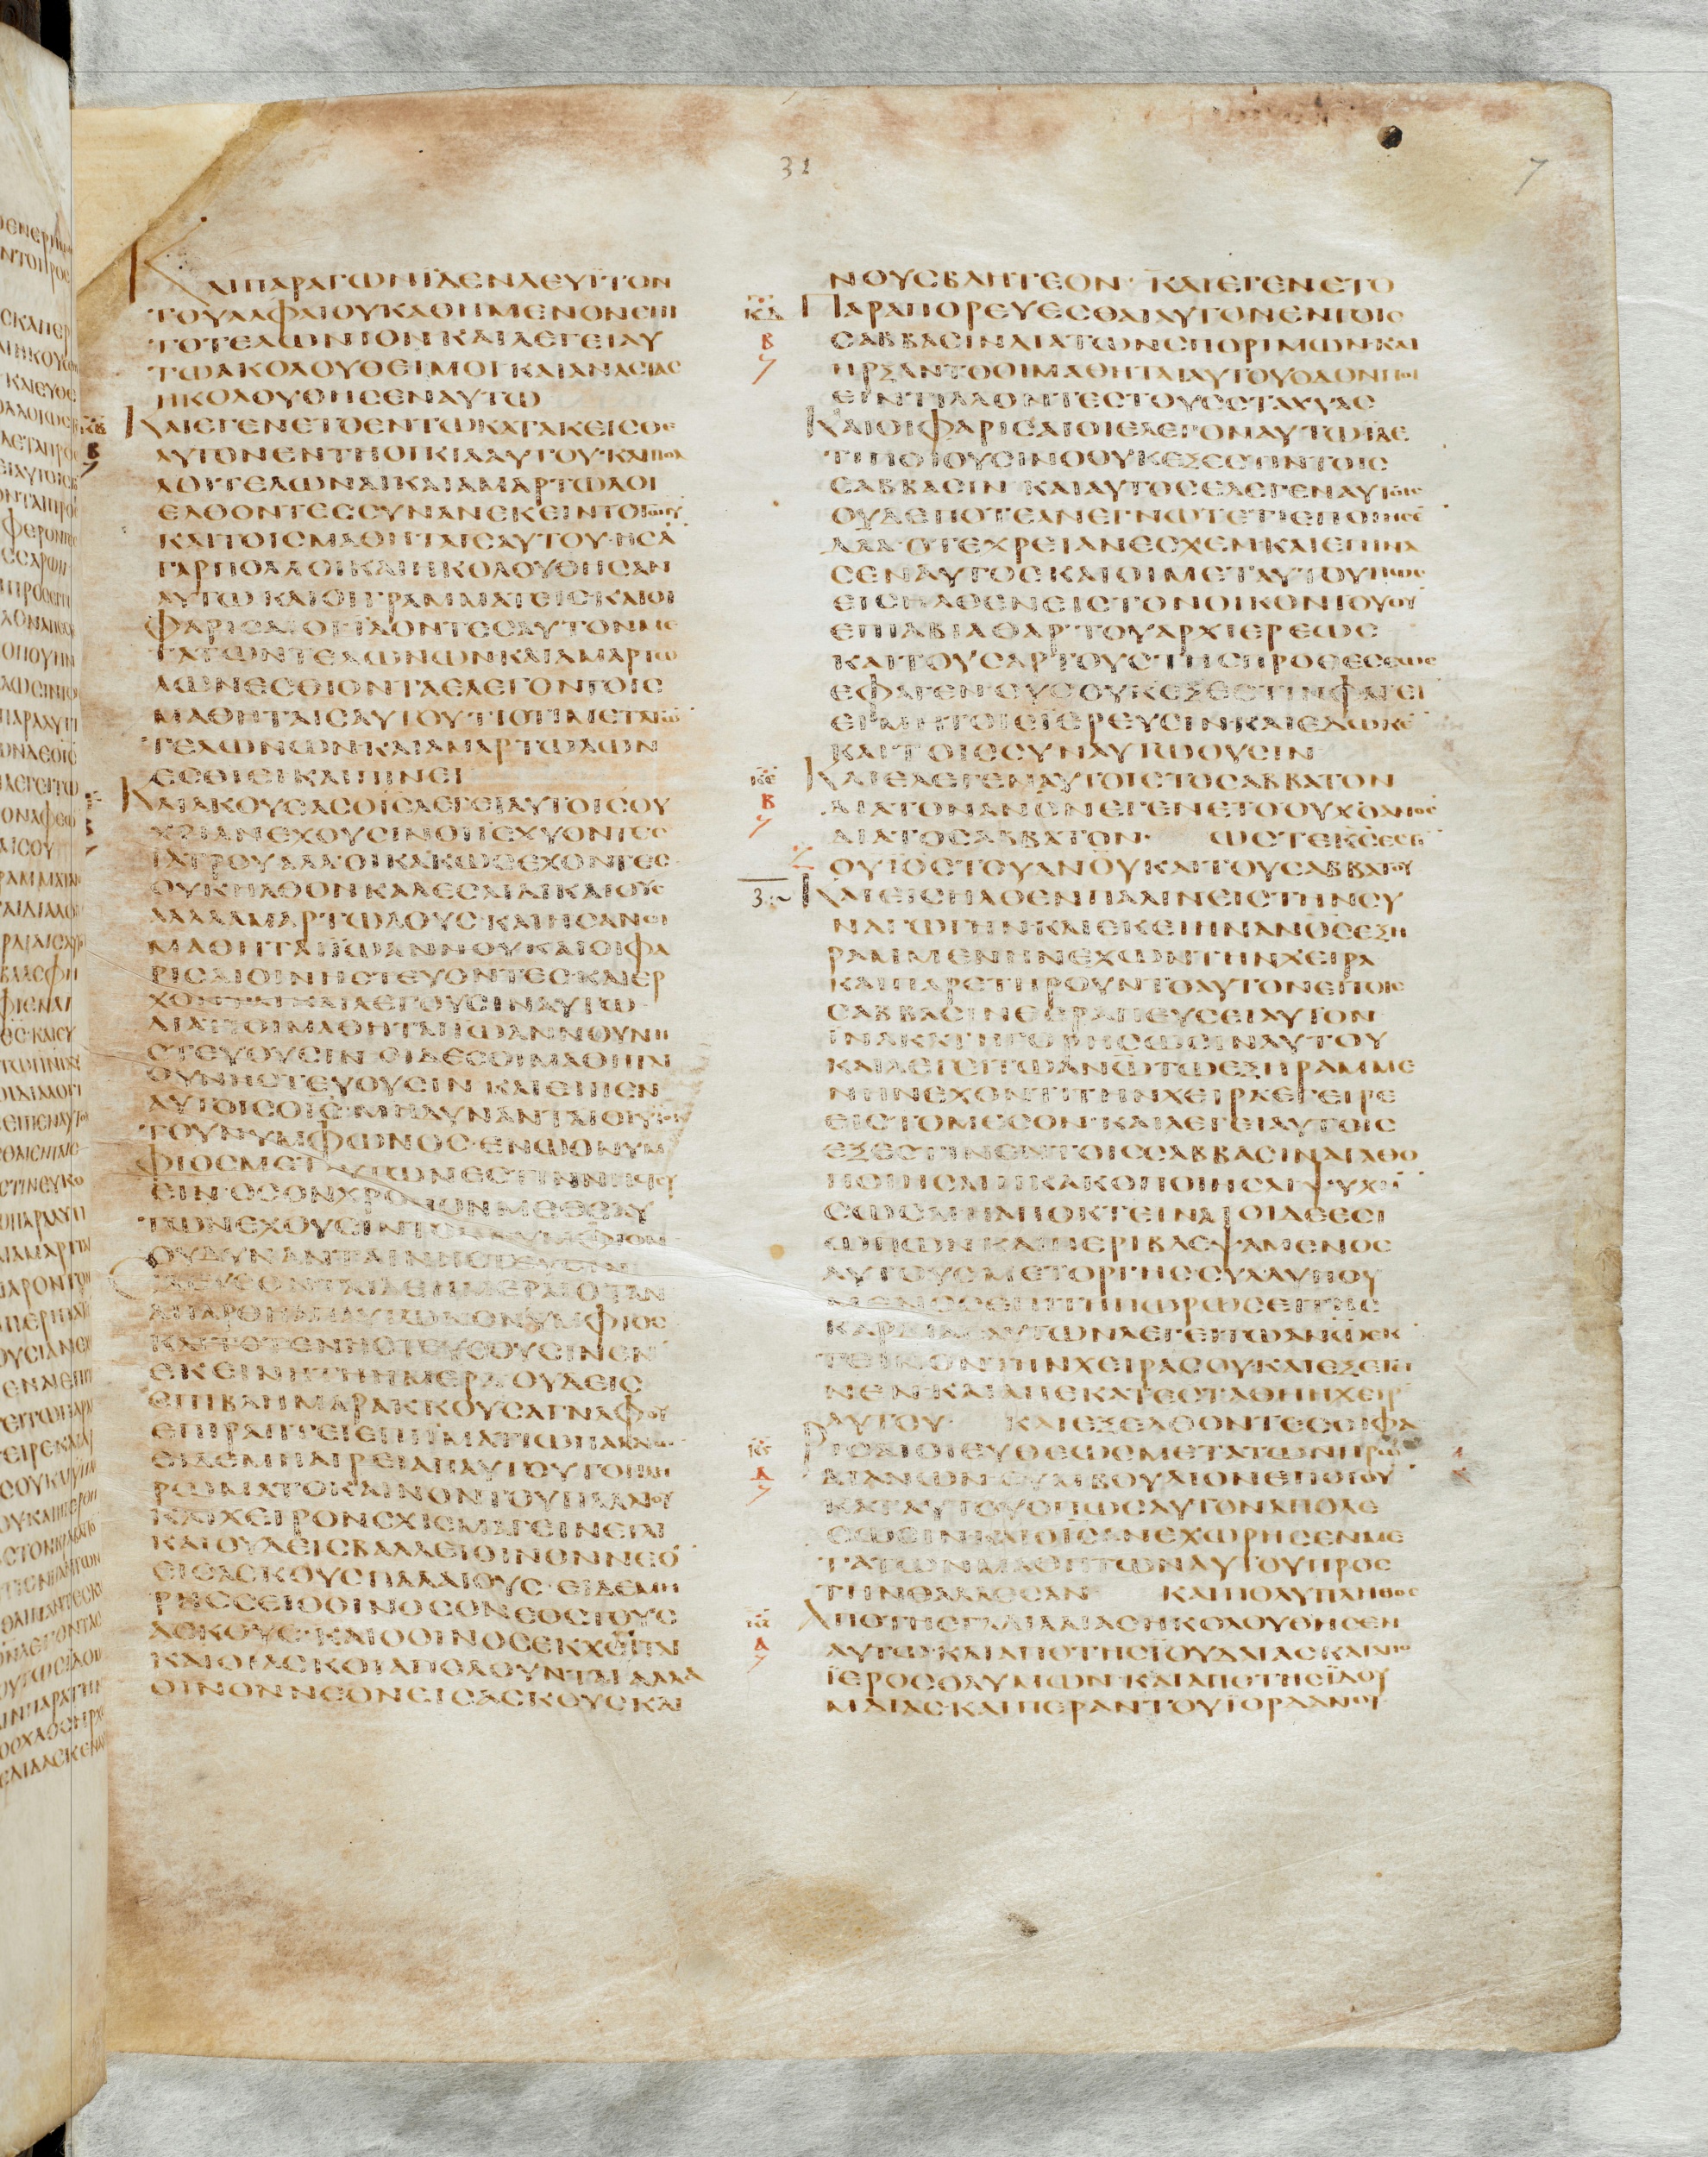 31
7
ΚΑΙΠΑΡΑΓΩΝΪΔΕΝΛΕΥΪΤΟΝ
ΤΟΥΑΛΦΑΙΟΥΚΑΘΗΜΕΝΟΝΕΠΙ
ΤΟΤΕΛΩΝΙΟΝΚΑΙΛΕΓΕΙΑΥ
ΤΩΑΚΟΛΟΥΘΕΙΜΟΙΚΑΙΑΝΑΣΤΑΣ
ΗΚΟΛΟΥΘΗΣΕΝΑΥΤΩ
ΚΑΙΕΓΕΝΕΤΟΕΝΤΩΚΑΤΑΚΕΙΣΘΕ
ΑΥΤΟΝΕΝΤΗΟΙΚΙΑΑΥΤΟΥ·ΚΑΙΠΟΛ
ΛΟΙΤΕΛΩΝΑΙΚΑΙΑΜΑΡΤΩΛΟΙ
ΕΛΘΟΝΤΕΣΣΥΝΑΝΕΚΕΙΝΤΟΤΩΙΥ
ΚΑΙΤΟΙΣΜΑΘΗΤΑΙΣΑΥΤΟΥ·ΗΣΑ
ΓΑΡΠΟΛΛΟΙΚΑΙΗΚΟΛΟΥΘΗΣΑΝ
ΑΥΤΩΚΑΙΟΙΓΡΑΜΜΑΤΕΙΣ·ΚΑΙΟΙ
ΦΑΡΙΣΑΙΟΙΪΔΟΝΤΕΣΑΥΤΟΝΜΕ
ΤΑΤΩΝΤΕΛΩΝΩΝΚΑΙΑΜΑΡΤΩ
ΛΩΝΕΣΘΙΟΝΤΑΕΛΕΓΟΝΤΟΙΣ
ΜΑΘΗΤΑΙΣΑΥΤΟΥ·ΤΙΟΤΙΜΕΤΑΤΩ
ΤΕΛΩΝΩΝ·ΚΑΙΑΜΑΡΤΩΛΩΝ
ΕΣΘΙΕΙΚΑΙΠΙΝΕΙ
ΚΑΙΑΚΟΥΣΑΣΟΙΣΛΕΓΕΙΑΥΤΟΙΣΟΥ
ΧΡΙΑΝΕΧΟΥΣΙΝΟΙΙΣΧΥΟΝΤΕΣ
ΙΑΤΡΟΥΑΛΛΟΙΚΑΚΩΣΕΧΟΝΤΕΣ
ΟΥΚΗΛΘΟΝΚΑΛΕΣΑΙΔΙΚΑΙΟΥΣ
ΑΛΛΑΑΜΑΡΤΩΛΟΥΣ·ΚΑΙΗΣΑΝΟΙ
ΜΑΘΗΤΑΙΪΩΑΝΝΟΥΚΑΙΟΙΦΑ
ΡΙΣΑΙΟΙΝΗΣΤΕΥΟΝΤΕΣ·ΚΑΙΕΡ
ΧΟΝΤΑΙΚΑΙΛΕΓΟΥΣΙΝΑΥΤΩ
ΔΙΑΤΙΟΙΜΑΘΗΤΑΙΪΩΑΝΝΟΥΝΗ
ΣΤΕΥΟΥΣΙΝΟΙΔΕΣΟΙΜΑΘΗΤΑΙ
ΟΥΝΗΣΤΕΥΟΥΣΙΝΚΑΙΕΙΠΕΝ
ΑΥΤΟΙΣΟΙΣ·ΜΗΔΥΝΑΝΤΑΙΟΙΥΙΟΙ
ΤΟΥΝΥΜΦΩΝΟΣ·ΕΝΩΟΝΥΜ
ΦΙΟΣΜΕΤΑΥΤΩΝΕΣΤΙΝΝΗΣΤΕΥ
ΕΙΝ·ΟΣΟΝΧΡΟΝΟΝΜΕΘΕΑΥ
ΤΩΝΕΧΟΥΣΙΝΤΟΝΝΥΜΦΙΟΝ
ΟΥΔΥΝΑΝΤΑΙΝΗΣΤΕΥΕΙΝ
ΕΛΕΥΣΟΝΤΑΙΔΕΗΜΕΡΑΙΟΤΑΝ
ΑΠΑΡΘΗΑΠΑΥΤΩΝΟΝΥΜΦΙΟΣ
ΚΑΙΤΟΤΕΝΗΣΤΕΥΣΟΥΣΙΝΕΝ
ΕΚΕΙΝΗΤΗΗΜΕΡΑΟΥΔΕΙΣ
ΕΠΙΒΛΗΜΑΡΑΚΚΟΥΣΑΓΝΑΦΟΥ
ΕΠΙΡΑΠΤΕΙΕΠΙΪΜΑΤΙΩΠΑΛΑΙΩ
ΕΙΔΕΜΗΑΙΡΕΙΑΠΑΥΤΟΥΤΟΠΛΗ
ΡΩΜΑΤΟΚΑΙΝΟΝΤΟΥΠΑΛΑΙΟΥ
ΚΑΙΧΕΙΡΟΝΣΧΙΣΜΑΓΕΙΝΕΤΑΙ
ΚΑΙΟΥΔΕΙΣΒΑΛΛΕΙΟΙΝΟΝΝΕΟ
ΕΙΣΑΣΚΟΥΣΠΑΛΑΙΟΥΣ·ΕΙΔΕΜΗ
ΡΗΣΣΕΙΟΟΙΝΟΣΟΝΕΟΣΤΟΥΣ
ΑΣΚΟΥΣ·ΚΑΙΟΟΙΝΟΣΕΚΧΕΙΤΑΙ
ΚΑΙΟΙΑΣΚΟΙΑΠΟΛΟΥΝΤΑΙΑΛΛΑ
ΟΙΝΟΝΝΕΟΝΕΙΣΑΣΚΟΥΣΚΑΙ
ΝΟΥΣΒΛΗΤΕΟΝ·ΚΑΙΕΓΕΝΕΤΟ
ΠΑΡΑΠΟΡΕΥΕΣΘΑΙΑΥΤΟΝΕΝΤΟΙΣ
ΣΑΒΒΑΣΙΝΔΙΑΤΩΝΣΠΟΡΙΜΩΝ·ΚΑΙ
ΗΡΞΑΝΤΟΟΙΜΑΘΗΤΑΙΑΥΤΟΥΟΔΟΝΠΟΙ
ΕΙΝΤΙΛΛΟΝΤΕΣΤΟΥΣΣΤΑΧΥΑΣ
ΚΑΙΟΙΦΑΡΙΣΑΙΟΙΕΛΕΓΟΝΑΥΤΩΪΔΕ
ΤΙΠΟΙΟΥΣΙΝΟΟΥΚΕΞΕΣΤΙΝΤΟΙΣ
ΣΑΒΒΑΣΙΝΚΑΙΑΥΤΟΣΕΛΕΓΕΝΑΥΤΟΙΣ
ΟΥΔΕΠΟΤΕΑΝΕΓΝΩΤΕΤΙΕΠΟΙΗΣΕ
ΔΑΔ·ΟΤΕΧΡΕΙΑΝΕΣΧΕΝ·ΚΑΙΕΠΙΝΑ
ΣΕΝΑΥΤΟΣΚΑΙΟΙΜΕΤΑΥΤΟΥΠΩΣ
ΕΙΣΗΛΘΕΝΕΙΣΤΟΝΟΙΚΟΝΤΟΥΘΥ
ΕΠΙΑΒΙΑΘΑΡ·ΤΟΥΑΡΧΙΕΡΕΩΣ
ΚΑΙΤΟΥΣΑΡΤΟΥΣΤΗΣΠΡΟΘΕΣΕΩΣ
ΕΦΑΓΕΝΟΥΣΟΥΚΕΞΕΣΤΙΝΦΑΓΕΙ
ΕΙΜΗΤΟΙΣΪΕΡΕΥΣΙΝ·ΚΑΙΕΔΩΚΕ
ΚΑΙΤΟΙΣΣΥΝΑΥΤΩΟΥΣΙΝ
ΚΑΙΕΛΕΓΕΝΑΥΤΟΙΣΤΟΣΑΒΒΑΤΟΝ
ΔΙΑΤΟΝΑΝΟΝΕΓΕΝΕΤΟΟΥΧΟΑΝΟΣ
ΔΙΑΤΟΣΑΒΒΑΤΟΝ· ΩΣΤΕΚΣΕΣΤΙ
ΟΥΙΟΣΤΟΥΑΝΟΥΚΑΙΤΟΥΣΑΒΒΑΤΟΥ
3 ΚΑΙΕΙΣΗΛΘΕΝΠΑΛΙΝΕΙΣΤΗΝΣΥ
ΝΑΓΩΓΗΝ·ΚΑΙΕΚΕΙΗΝΑΝΟΣΕΞΗ
ΡΑΜΜΕΝΗΝΕΧΩΝΤΗΝΧΕΙΡΑ
ΚΑΙΠΑΡΕΤΗΡΟΥΝΤΟΑΥΤΟΝΕΙΤΟΙΣ
ΣΑΒΒΑΣΙΝΘΕΡΑΠΕΥΣΕΙΑΥΤΟΝ
ΪΝΑΚΑΤΗΓΟΡΗΣΩΣΙΝΑΥΤΟΥ
ΚΑΙΛΕΓΕΙΤΩΑΝΩΤΩΕΞΗΡΑΜΜΕ
ΝΗΝΕΧΟΝΤΙΤΗΝΧΕΙΡΑΕΓΕΙΡΕ
ΕΙΣΤΟΜΕΣΟΝ·ΚΑΙΛΕΓΕΙΑΥΤΟΙΣ
ΕΞΕΣΤΙΝΕΝΤΟΙΣΣΑΒΒΑΣΙΝΑΓΑΘΟ
ΠΟΙΗΣΑΙΗΚΑΚΟΠΟΙΗΣΑΙΨΥΧΗ
ΣΩΣΑΙΗΑΠΟΚΤΕΙΝΑΙΟΙΔΕΕΣΙ
ΩΠΩΝΚΑΙΠΕΡΙΒΛΕΨΑΜΕΝΟΣ
ΑΥΤΟΥΣΜΕΤΟΡΓΗΣΣΥΛΛΥΠΟΥ
ΜΕΝΟΣΕΠΙΤΗΠΩΡΩΣΕΙΤΗΣ
ΚΑΡΔΙΑΣΑΥΤΩΝΛΕΓΕΙΤΩΑΝΩΕΚ
ΤΕΙΝΟΝΤΗΝΧΕΙΡΑΣΟΥΚΑΙΕΞΕΤΙ
ΝΕΝ·ΚΑΙΑΠΕΚΑΤΕΣΤΑΘΗΗΧΕΙΡ
ΑΥΤΟΥ ΚΑΙΕΞΕΛΘΟΝΤΕΣΟΙΦΑ
ΡΙΣΑΙΟΙΕΥΘΕΩΣΜΕΤΑΤΩΝΗΡΩ
ΔΙΑΝΩΝΣΥΜΒΟΥΛΙΟΝΕΠΟΙΟΥ
ΚΑΤΑΥΤΟΥΟΠΩΣΑΥΤΟΝΑΠΟΛΕ
ΣΩΣΙΝΚΑΙΟΙΣΑΝΕΧΩΡΗΣΕΝΜΕ
ΤΑΤΩΝΜΑΘΗΤΩΝΑΥΤΟΥΠΡΟΣ
ΤΗΝΘΑΛΑΣΣΑΝ ΚΑΙΠΟΛΥΠΛΗΘΟΣ
ΑΠΟΤΗΣΓΑΛΙΛΑΙΑΣΗΚΟΛΟΥΘΗΣΕΝ
ΑΥΤΩ·ΚΑΙΑΠΟΤΗΣΪΟΥΔΑΙΑΣΚΑΙΑΠΟ
ΪΕΡΟΣΟΛΥΜΩΝ·ΚΑΙΑΠΟΤΗΣΪΔΟΥ
ΜΑΙΑΣ·ΚΑΙΠΕΡΑΝΤΟΥΪΟΡΔΑΝΟΥ